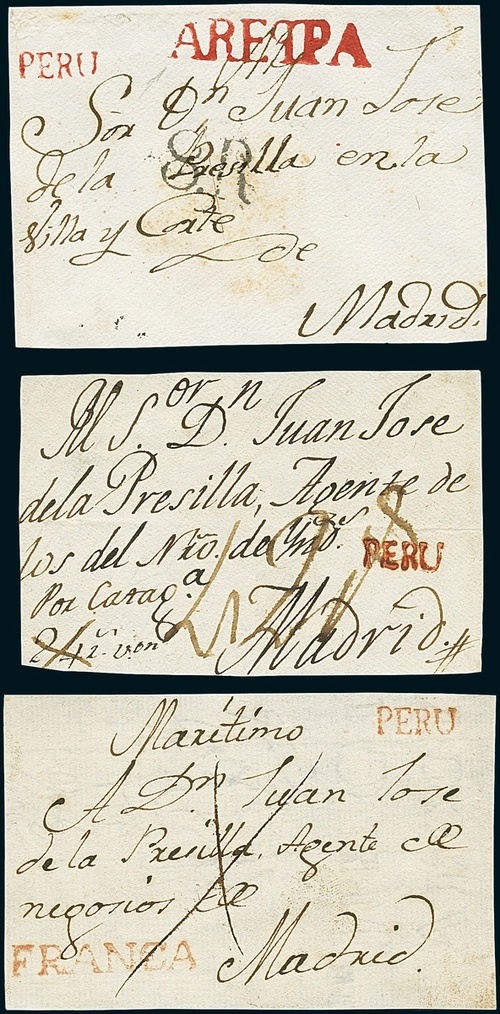 PERU AREIPA
Sor Dn Juan Jose
de la Presilla en la
S.R
Villa y Corte
de
Madrid.
Al S.or D.n Juan Jose
de la Presilla, Agente de
los del Nro. de
PERU
Por Cartag.a
Madrid.
Marítimo PERU
A Dn Juan Jose
de la Presilla, Agente de
negosios de
FRANCA Madrid.